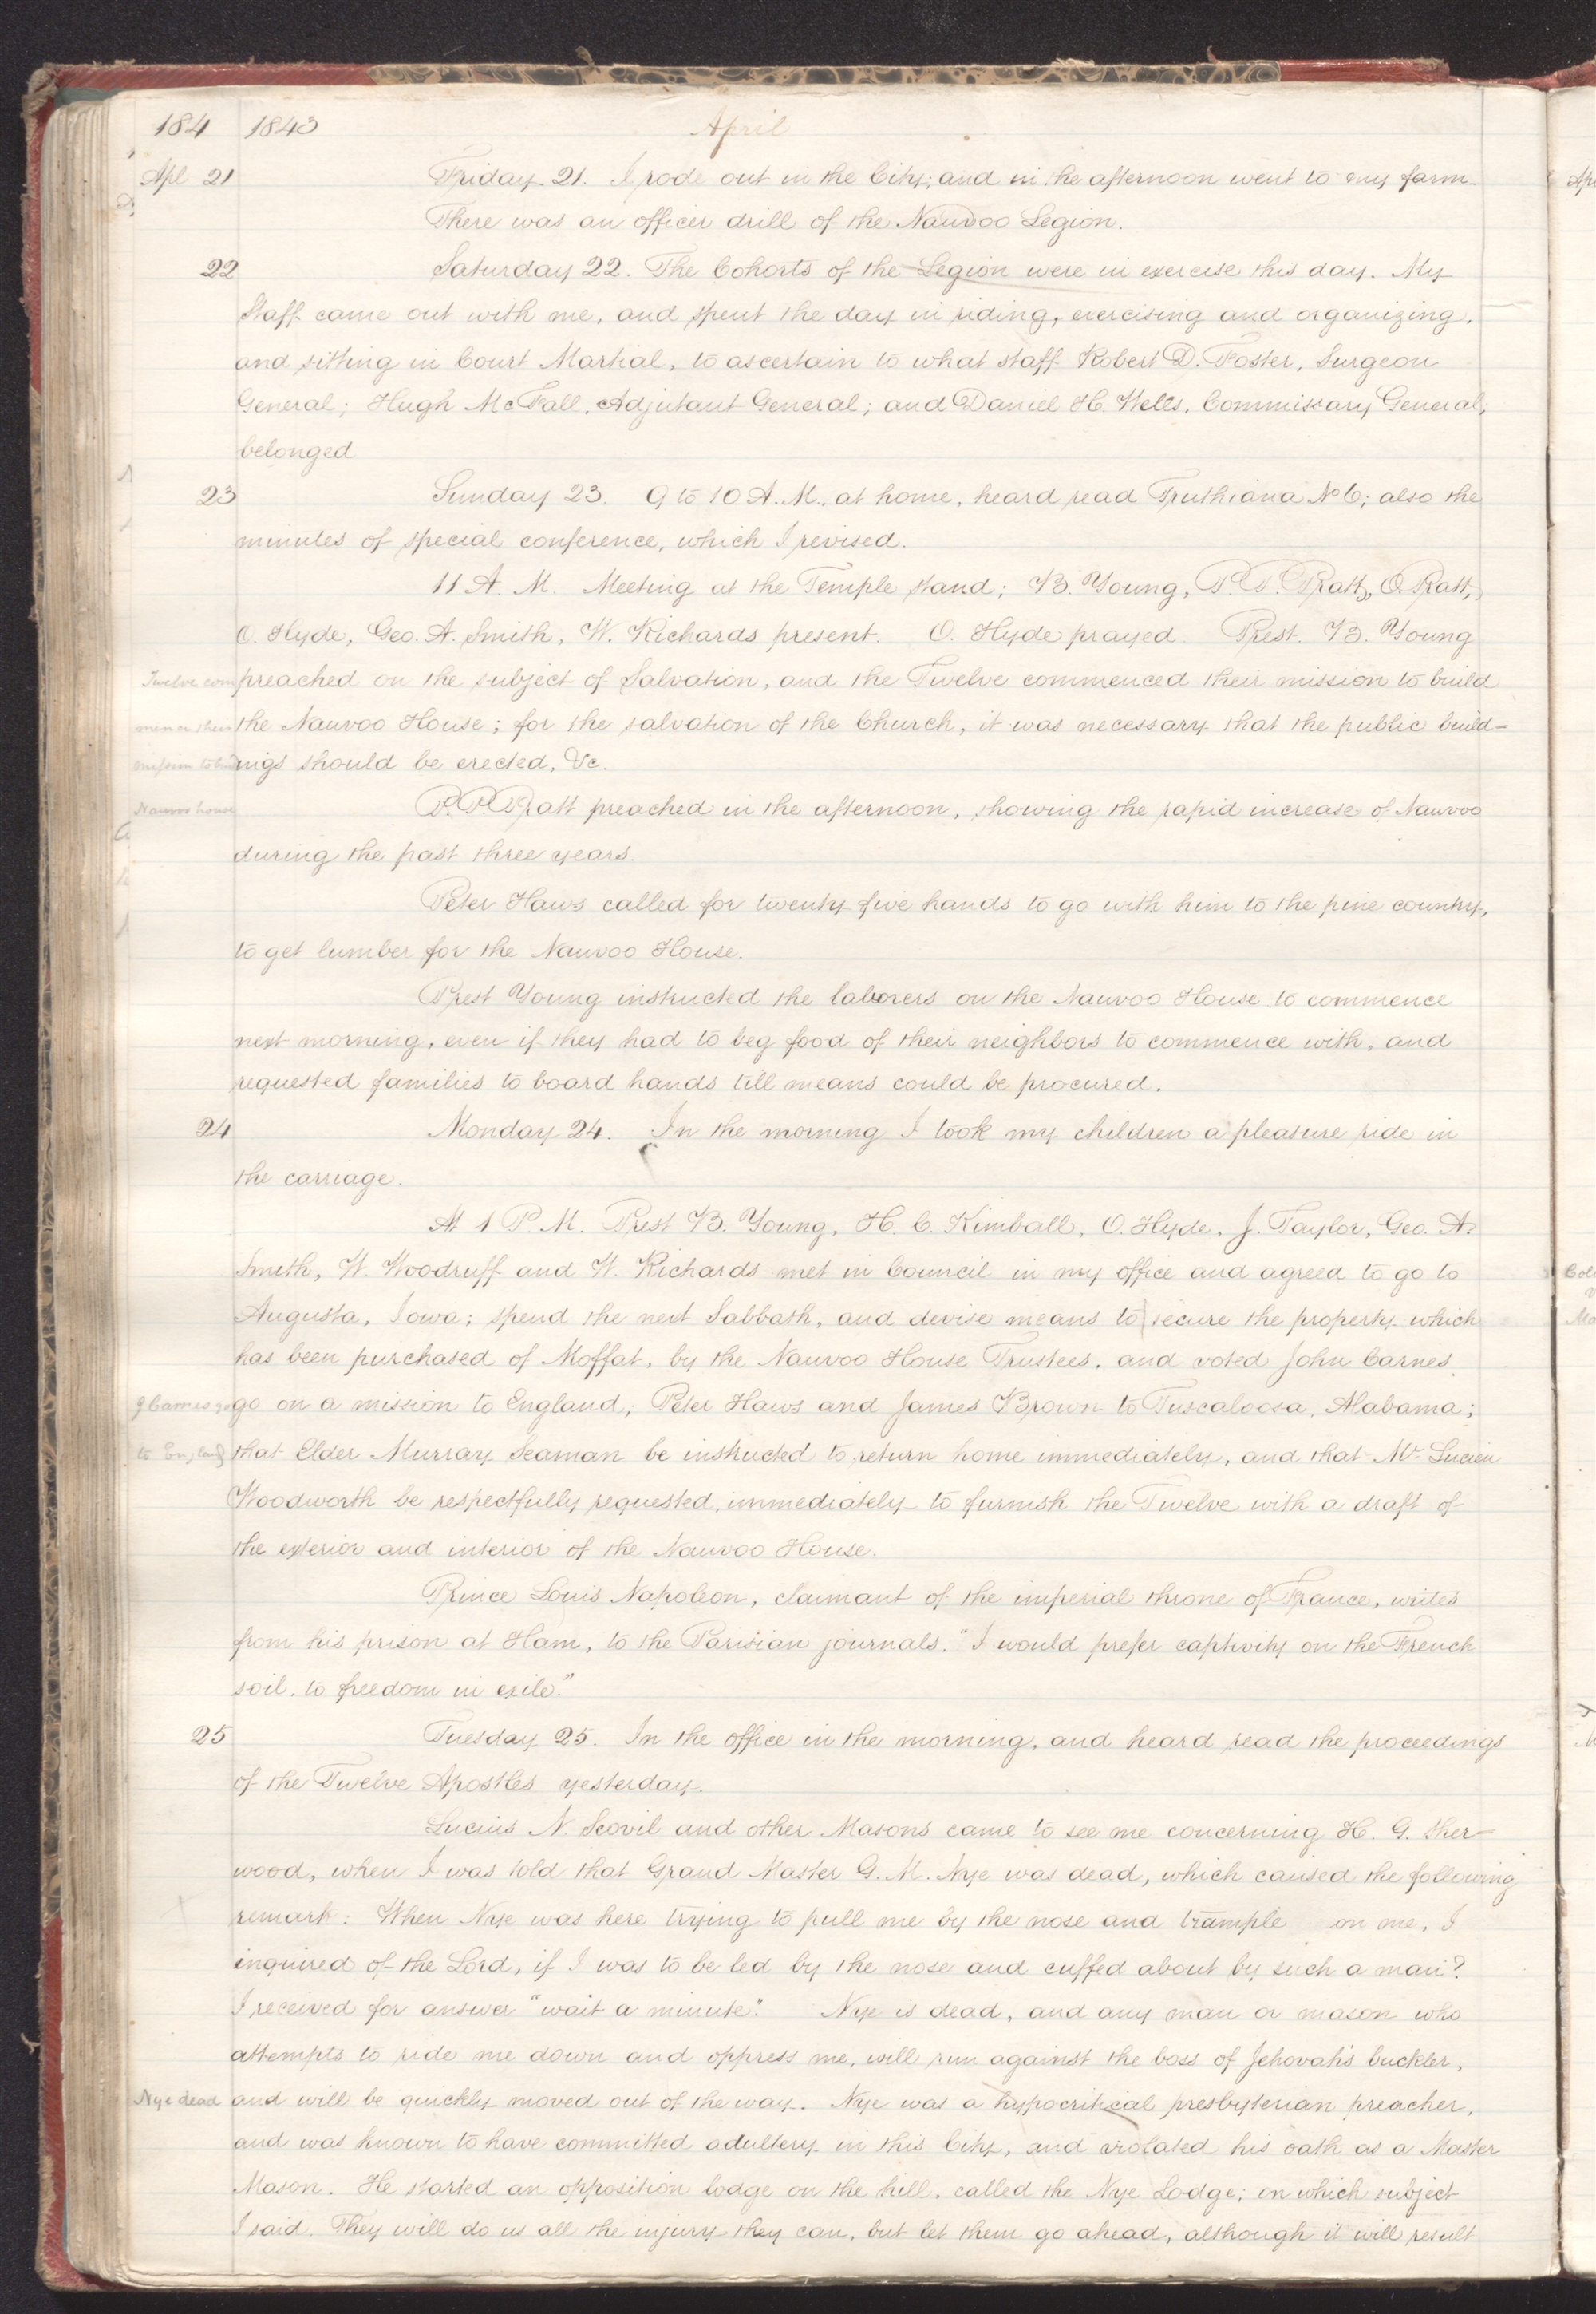 184 1843 April
Apl 21 Friday 21. I rode out in the City; and in the afternoon went to my farm.
There was an officer drill of the Nauvoo Legion.
22 Saturday 22. The Cohorts of the Legion were in exercise this day. My
Staff came out with me, and spent the day in riding, exercising and organizing,
and sitting in Court Martial, to ascertain to what staff Robert D. Foster, Surgeon
General; Hugh McFall, Adjutant General; and Daniel H. Wells, Commissary General;
belonged
23 Sunday 23. 9 to 10 A.M., at home, heard read Truthiana No 6; also the
minutes of special conference, which I revised.
11 A. M. Meeting at the Temple stand; B. Young, P. P. Pratt, O. Pratt,
O. Hyde, Geo. A. Smith, W. Richards present. O. Hyde prayed. Prest. B. Young
Twelve com preached on the subject of Salvation, and the Twelve commenced their mission to build
mence their the Nauvoo House; for the salvation of the Church, it was necessary that the public build-
mission to build ings should be erected, &c.
Nauvoo house P. P. Pratt preached in the afternoon, showing the rapid increase of Nauvoo
during the past three years.
Peter Haws called for twenty five hands to go with him to the pine country,
to get lumber for the Nauvoo House.
Prest Young instructed the laborers on the Nauvoo House to commence
next morning, even if they had to beg food of their neighbors to commence with, and
requested families to board hands till means could be procured.
24 Monday 24. In the morning I took my children a pleasure ride in
the carriage.
At 1 P. M. Prest B. Young, H. C. Kimball, O. Hyde, J. Taylor, Geo. A.
Smith, W. Woodruff and W. Richards met in Council in my office and agreed to go to
Augusta, Iowa; spend the next Sabbath, and devise means to secure the property which
has been purchased of Moffat, by the Nauvoo House Trustees, and voted John Carnes
J Carnes go go on a mission to England; Peter Haws and James Brown to Tuscaloosa, Alabama;
to England that Elder Murray Seaman be instructed to return home immediately, and that Mr Lucien
Woodworth be respectfully requested, immediately to furnish the Twelve with a draft of
the exterior and interior of the Nauvoo House.
Prince Louis Napoleon, claimant of the imperial throne of France, writes
from his prison at Ham, to the Parisian journals. "I would prefer captivity on the French
soil, to freedom in exile."
25 Tuesday 25. In the office in the morning, and heard read the proceedings
of the Twelve Apostles yesterday.
Lucius N. Scovil and other Masons came to see me concerning H. G. Sher-
wood, when I was told that Grand Master G. M. Nye was dead, which caused the following
remark: When Nye was here trying to pull me by the nose and trample on me, I
inquired of the Lord, if I was to be led by the nose and cuffed about by such a man?
I received for answer "wait a minute". Nye is dead, and any man or mason who
attempts to ride me down and oppress me, will run against the boss of Jehovah's buckler,
Nye dead and will be quickly moved out of the way. Nye was a hypocritical presbyterian preacher,
and was known to have committed adultery in this City, and violated his oath as a Master
Mason. He started an opposition lodge on the hill, called the Nye Lodge; on which subject
I said. They will do us all the injury they can, but let them go ahead, although it will result